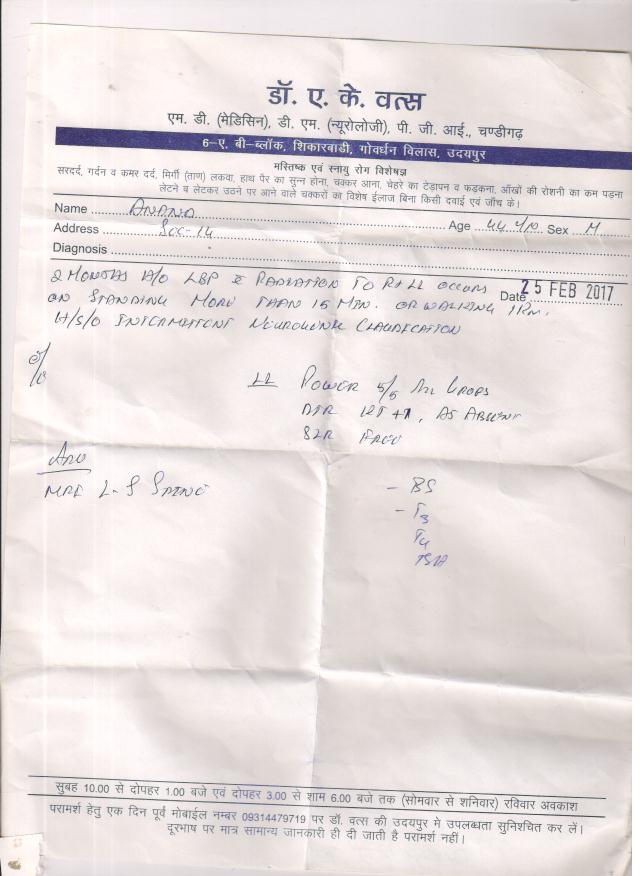 डॉ. ए. के. वत्स
एम. डी. (मेडिसिन), डी. एम. (न्यूरोलोजी), पी. जी. आई., चण्डीगढ़
6-ए, बी-ब्लॉक, शिकारबाडी, गोवर्धन विलास, उदयपुर
मस्तिष्क एवं स्नायु रोग विशेषज्ञ
सरदर्द, गर्दन व कमर दर्द, मिर्गी (ताण) लकवा, हाथ पैर का सुन्न होना, चक्कर आना, चेहरे का टेड़ापन व फड़कना, आँखों की रोशनी का कम पड़ना
लेटने व लेटकर उठने पर आने वाले चक्करों का विशेष ईलाज बिना किसी दवाई एवं जाँच के।
Name ANAND Age 44 Y/O Sex M
Address Sec-14
Diagnosis
2 MONTHS H/O LBP RADIATION TO Rt LL OCCURS
Date 25 FEB 2017
ON STANDING MORE THAN 15 MIN. OR WALKING 1 KM.
H/S/O INTERMITTENT NEUROGENIC CLAUDICATION
O/E
LL POWER 5/5 ALL GROUPS
DTR , AJ ABSENT
SLR FREE
Adv
MRI L-S SPINE
- BS
- T3
T4
TSH
सुबह 10.00 से दोपहर 1.00 बजे एवं दोपहर 3.00 से शाम 6.00 बजे तक (सोमवार से शनिवार) रविवार अवकाश
परामर्श हेतु एक दिन पूर्व मोबाईल नम्बर 09314479719 पर डॉ. वत्स की उदयपुर मे उपलब्धता सुनिश्चित कर लें।
दूरभाष पर मात्र सामान्य जानकारी ही दी जाती है परामर्श नहीं।